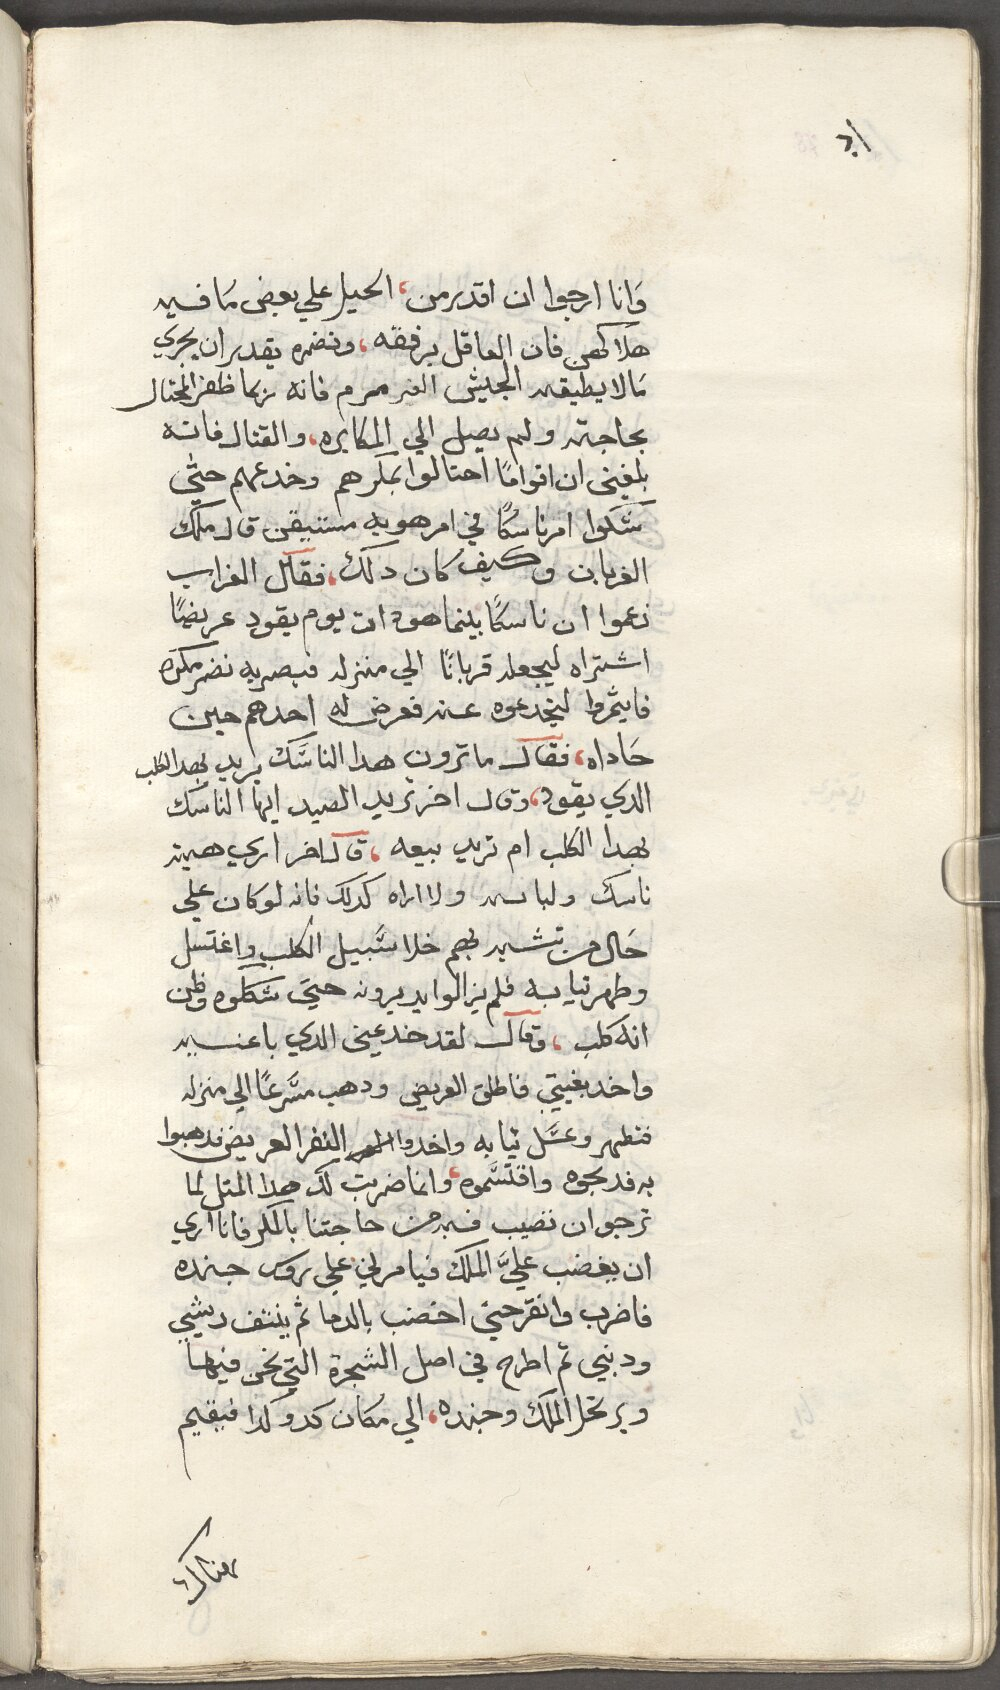 وانا ارجوا ان اقدر من، الحيل علي بعض ما فيه
هلاكهن فان العاقل برفقه، ونضره يقدر ان يجري
ما لا يطيقه الجيش العرمرم فانه ربما ظفر المحتال
بحاجته ولم يصل الي المكابره، والقتال فانه
بلغني ان اقوامًا احتالوا بمكرهم وخدعهم حتّي
شككوا امر ناسكًا في امر هو به مستيقن قال ملك
الغربان وكيف كان دلك، فقال الغراب
زعموا ان ناسكًا بينما هو دات يوم يقود عريضًا
اشتراه ليجعله قربانًا الي منزله فبصر به نضر مكره
فايتمروا ليخدعوه عنه فعرض له احدهم حين
حاداه، فقال ما ترون هدا الناسّك يريد بهدا الكلب
الدي يقود، وقال اخر تريد الصيد ايها الناسك
بهدا الكلب ام تريد بيعه، قال اخر اري هيية
ناسك ولباسه ولا اراه كدلك فانه لو كان علي
حال من تشبه بهم خلا سّبيل الكلب واغتسل
وطهر تيابه فلم يزالوا يديرونه حتيّ شككوه وظن
انه كلب، وقال لقد خدعني الدي باعنيه
واخد بغيتي فاطلق العريض ودهب مسّرعًا الي منزله
فتطهر وغسّل تيابه واخدوا النفر العريض فدهبوا
به فدبحوه واقتسّموه، وانما ضربت لك هدا المتل لما
ترجوان نصيب فيه من حاجتنا بالمكر فانا اري
ان يغضب عليَّ الملك فيامر لي علي روس جنده
فاضرب وانقر حتي اخضب بالدما ثم ينتف ريشي
ودنبي تم اطرح في اصل الشجرة التي نحن فيها
ويرتحل الملك وجنده، الي مكان كدو كدا فيقيم
هناك